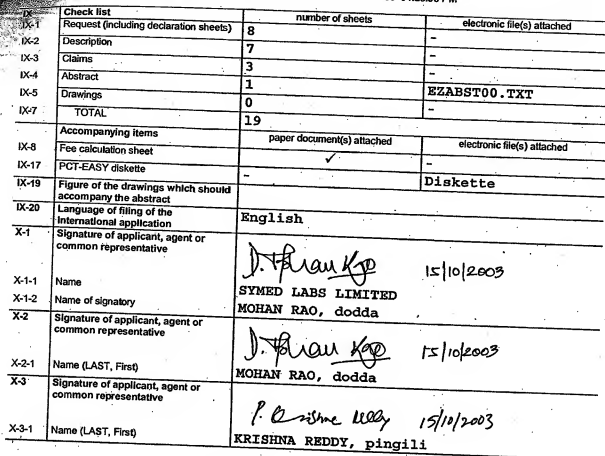 IX Check list number of sheets electronic file(s) attached
IX-1 Request (including declaration sheets) 8 -
IX-2 Description 7 -
IX-3 Claims 3 -
IX-4 Abstract 1 EZABST00.TXT
IX-5 Drawings 0 -
IX-7 TOTAL 19
Accompanying items paper document(s) attached electronic file(s) attached
IX-8 Fee calculation sheet ✓ -
IX-17 PCT-EASY diskette - Diskette
IX-19 Figure of the drawings which should
accompany the abstract
IX-20 Language of filing of the
International application English
X-1 Signature of applicant, agent or
common representative
D. Mohan Rao 15/10/2003
X-1-1 Name SYMED LABS LIMITED
X-1-2 Name of signatory MOHAN RAO, dodda
X-2 Signature of applicant, agent or
common representative
D. Mohan Rao 15/10/2003
X-2-1 Name (LAST, First) MOHAN RAO, dodda
X-3 Signature of applicant, agent or
common representative
P. Krishna Reddy 15/10/2003
X-3-1 Name (LAST, First) KRISHNA REDDY, pingili